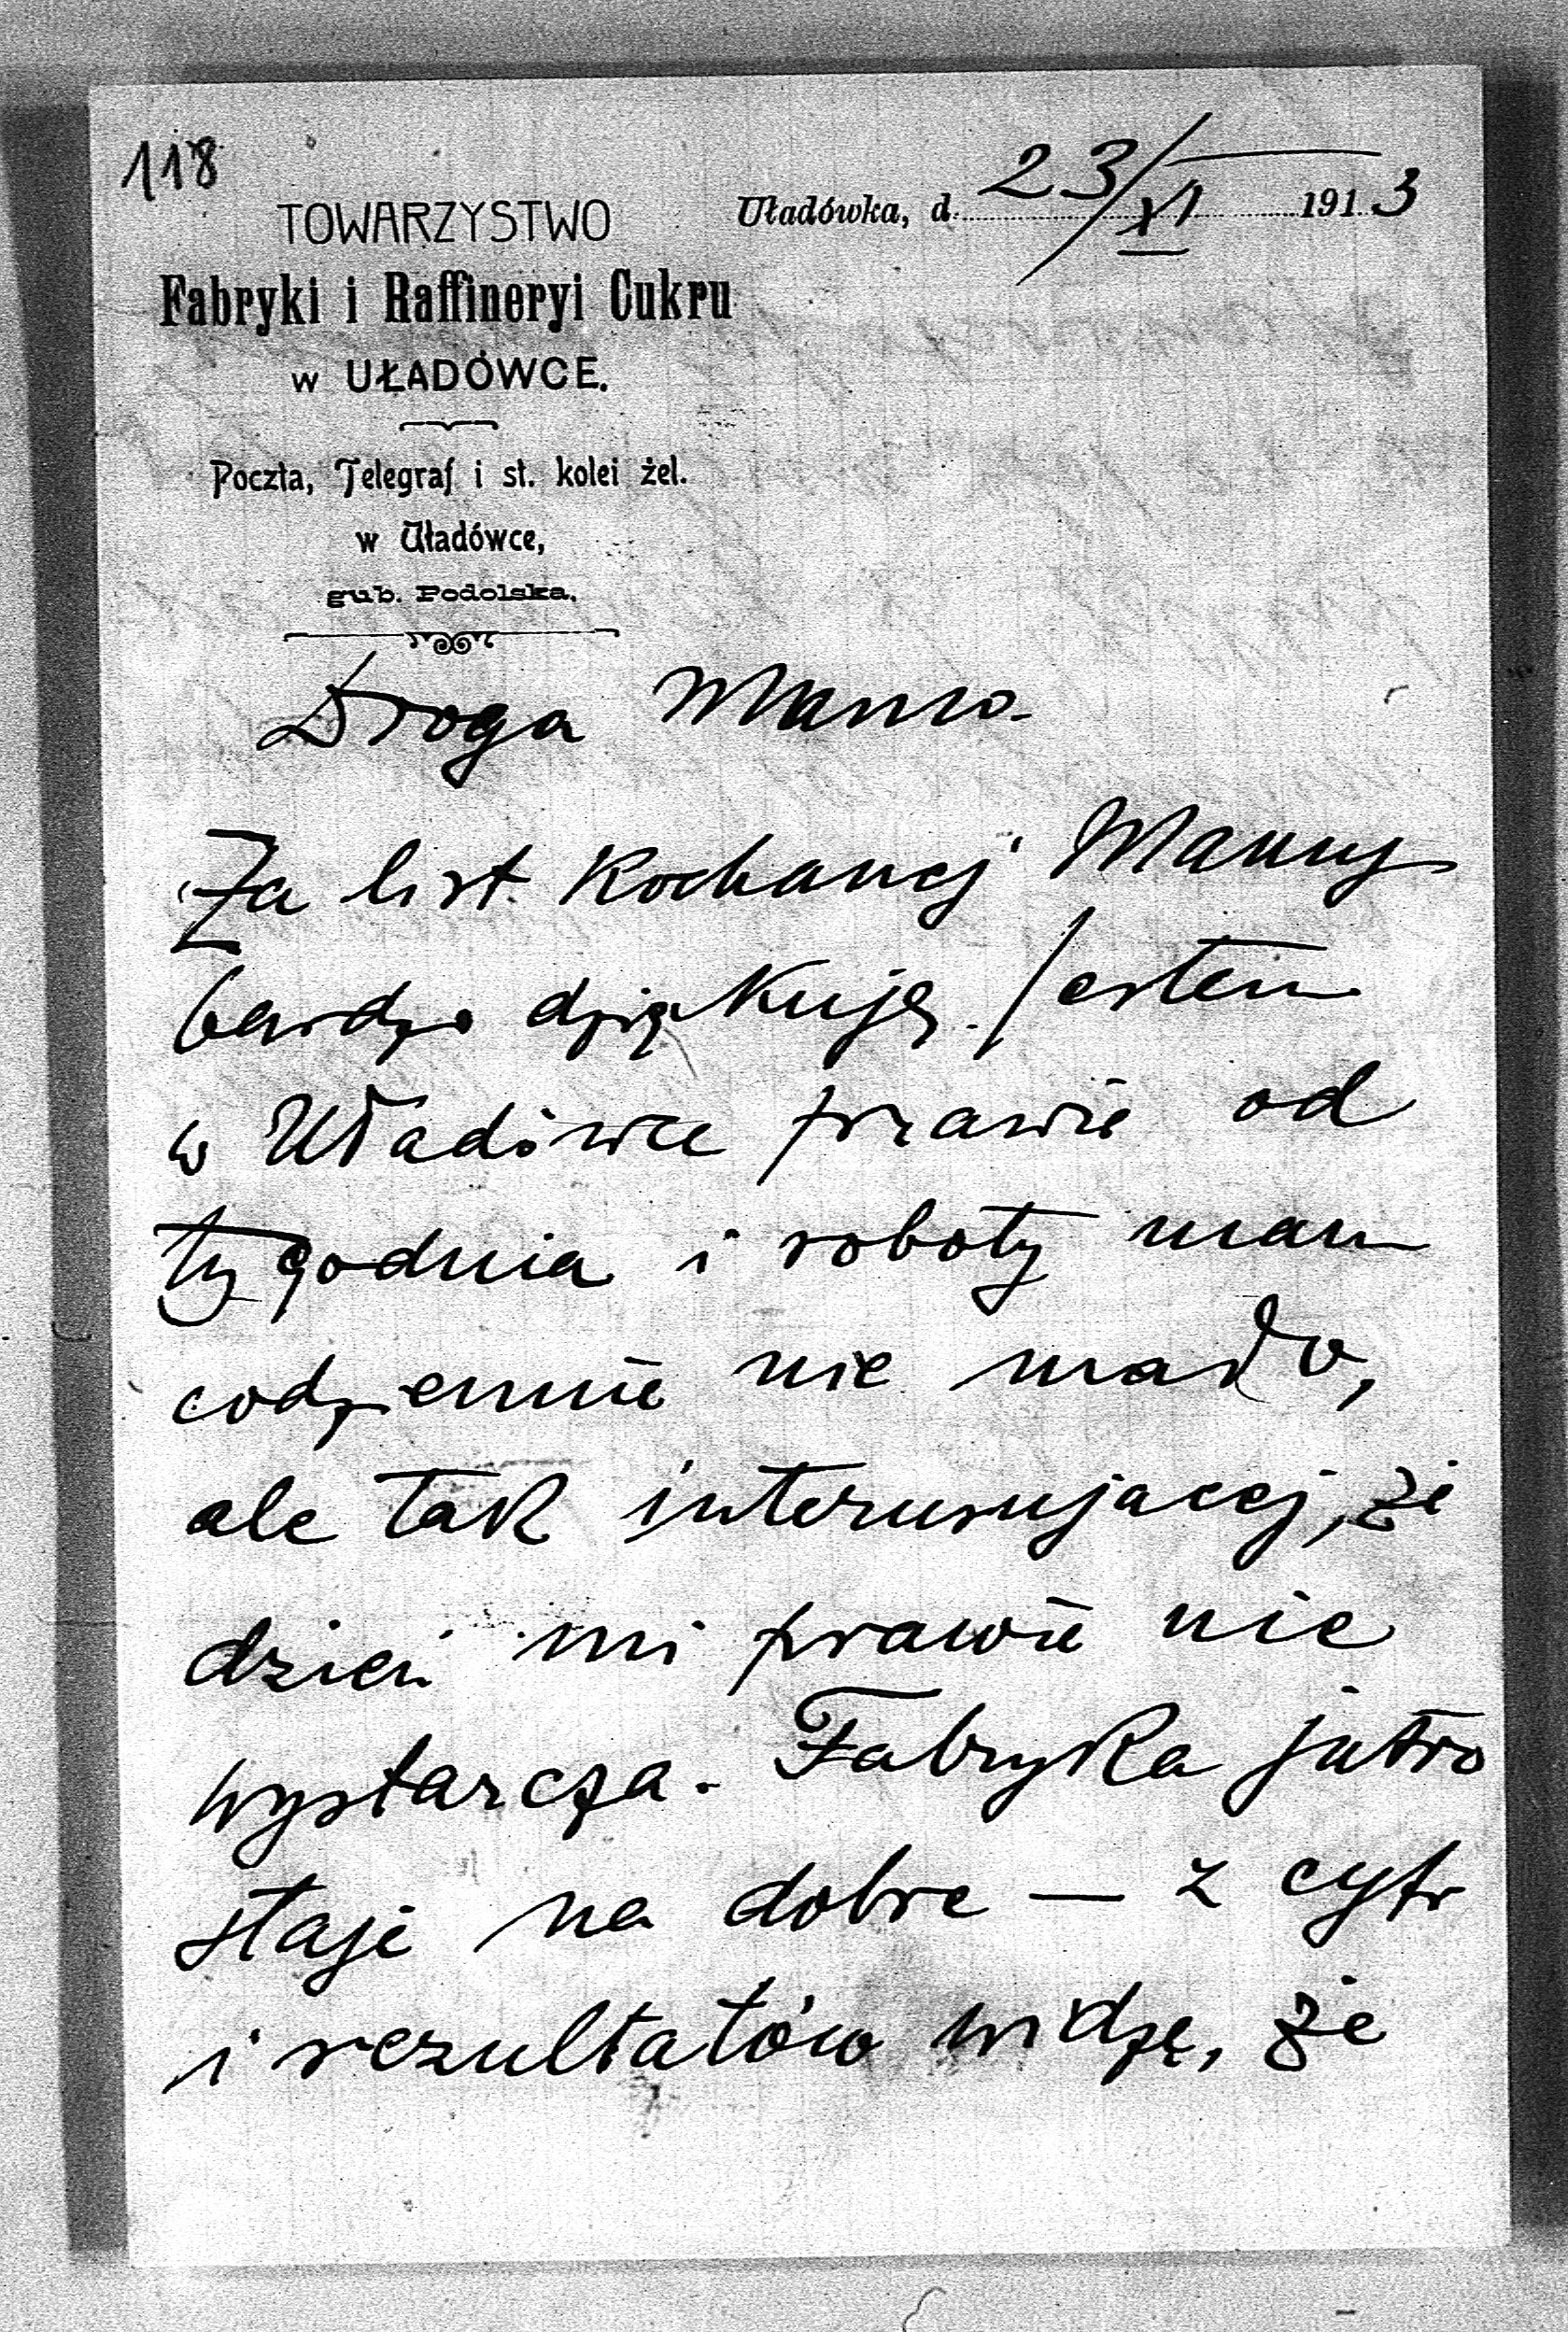 118
TOWARZYSTWO
Fabryki i Raffineryi Cukru
w UŁADÓWCE.
Poczta, Telegraf i st. kolei żel.
w Uładówce,
gub. Podolska.
Uładówka, d. 23/XI 1913
Droga Mamo
Za list Kochanej Mamy
bardzo dziękuję. Jestem
w Uładówce prawie od
tygodnia i roboty mam
codziennie nie mało,
ale tak interesującej, że
dzień mi prawie nie
wystarcza. Fabryka jutro
staje na dobre — z cyfr
i rezultatów widzę, że